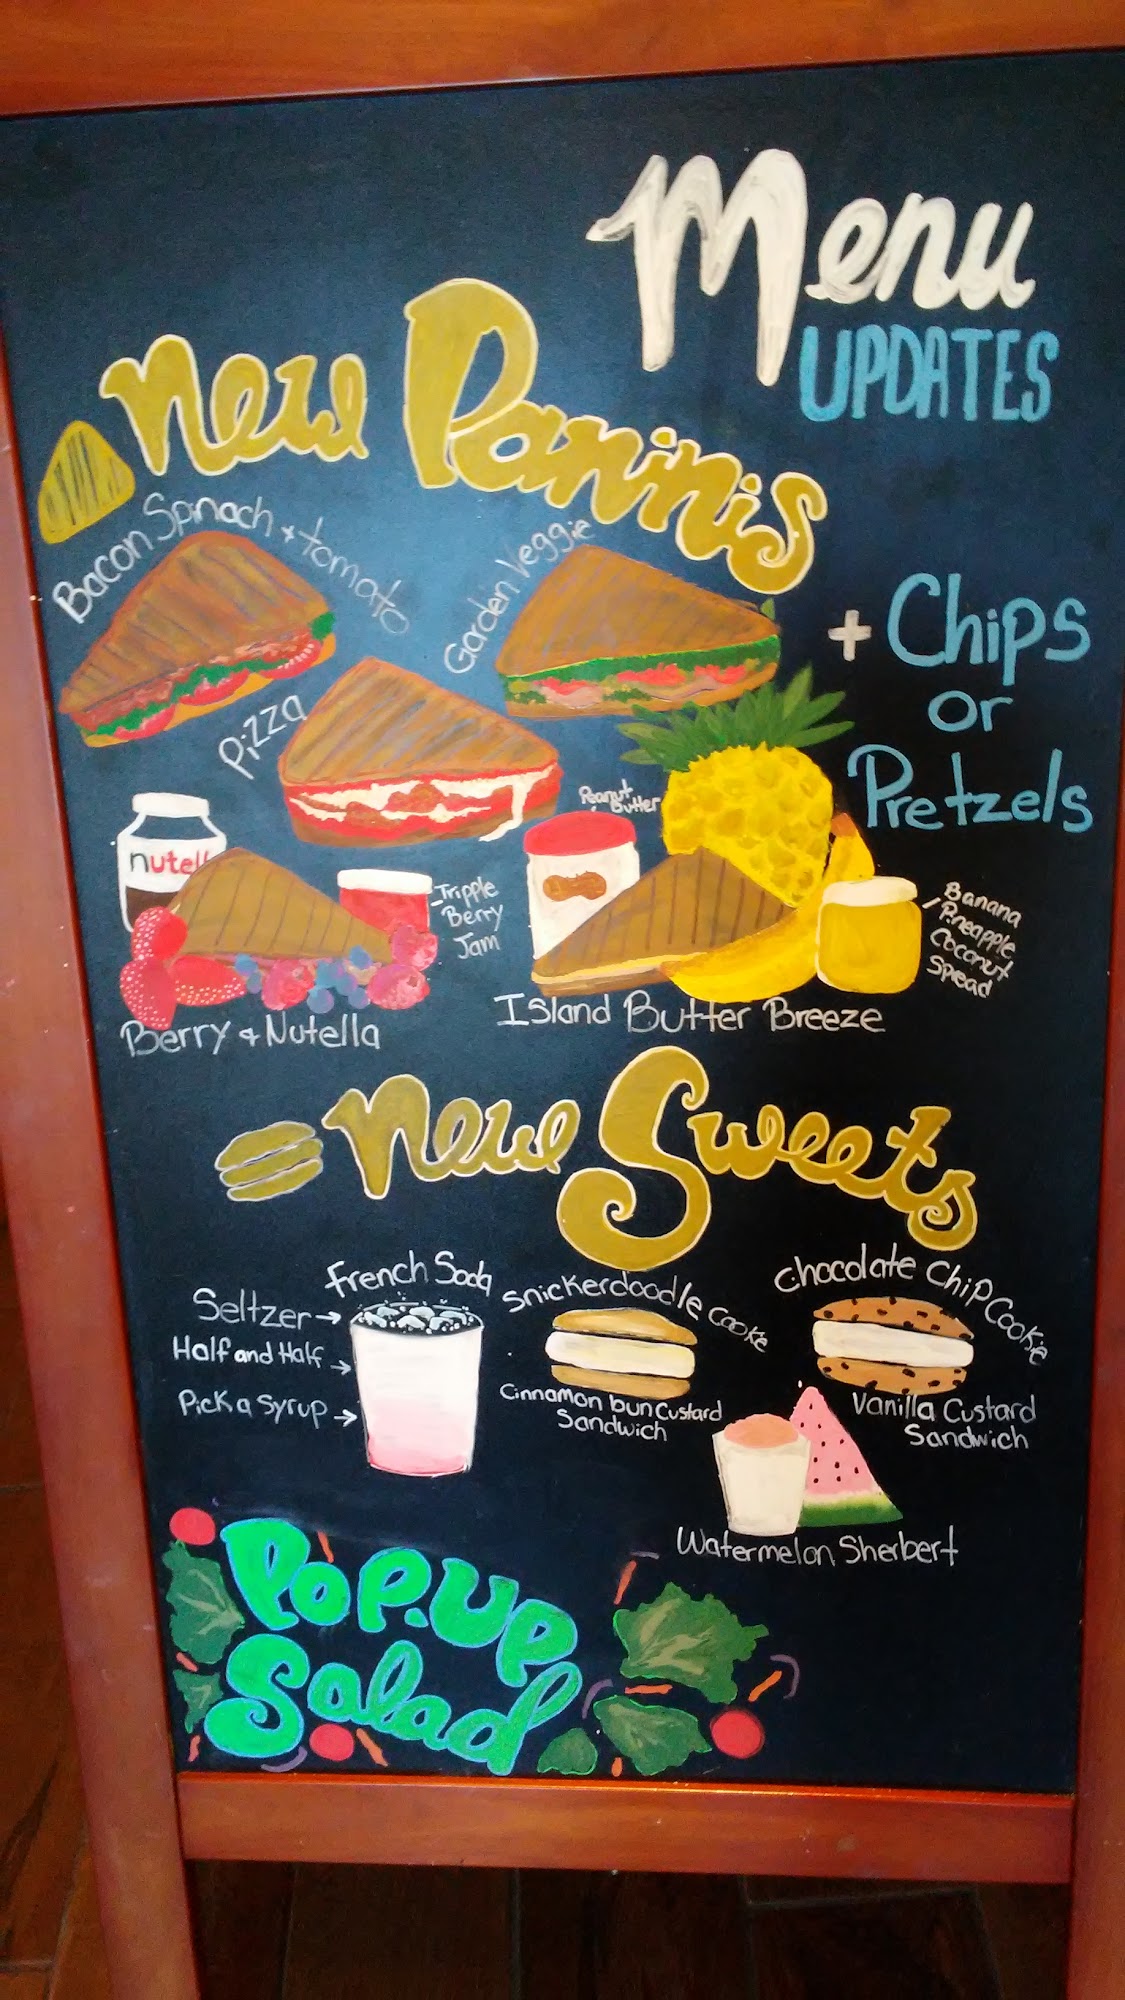 Menu
UPDATES
New Paninis
Bacon Spinach + tomato
Garden Veggie
+ Chips
or
Pretzels
Pizza
Peanut
Butter
nutell
Tripple
Berry
Jam
Banana
Pineapple
Coconut
Spread
Berry + Nutella
Island Butter Breeze
New Sweets
French Soda
Seltzer →
Half and Half →
Pick a Syrup →
Snickerdoodle Cookie
Cinnamon bun Custard
Sandwich
Chocolate Chip Cookie
Vanilla Custard
Sandwich
Watermelon Sherbert
Pop-Up
Salad